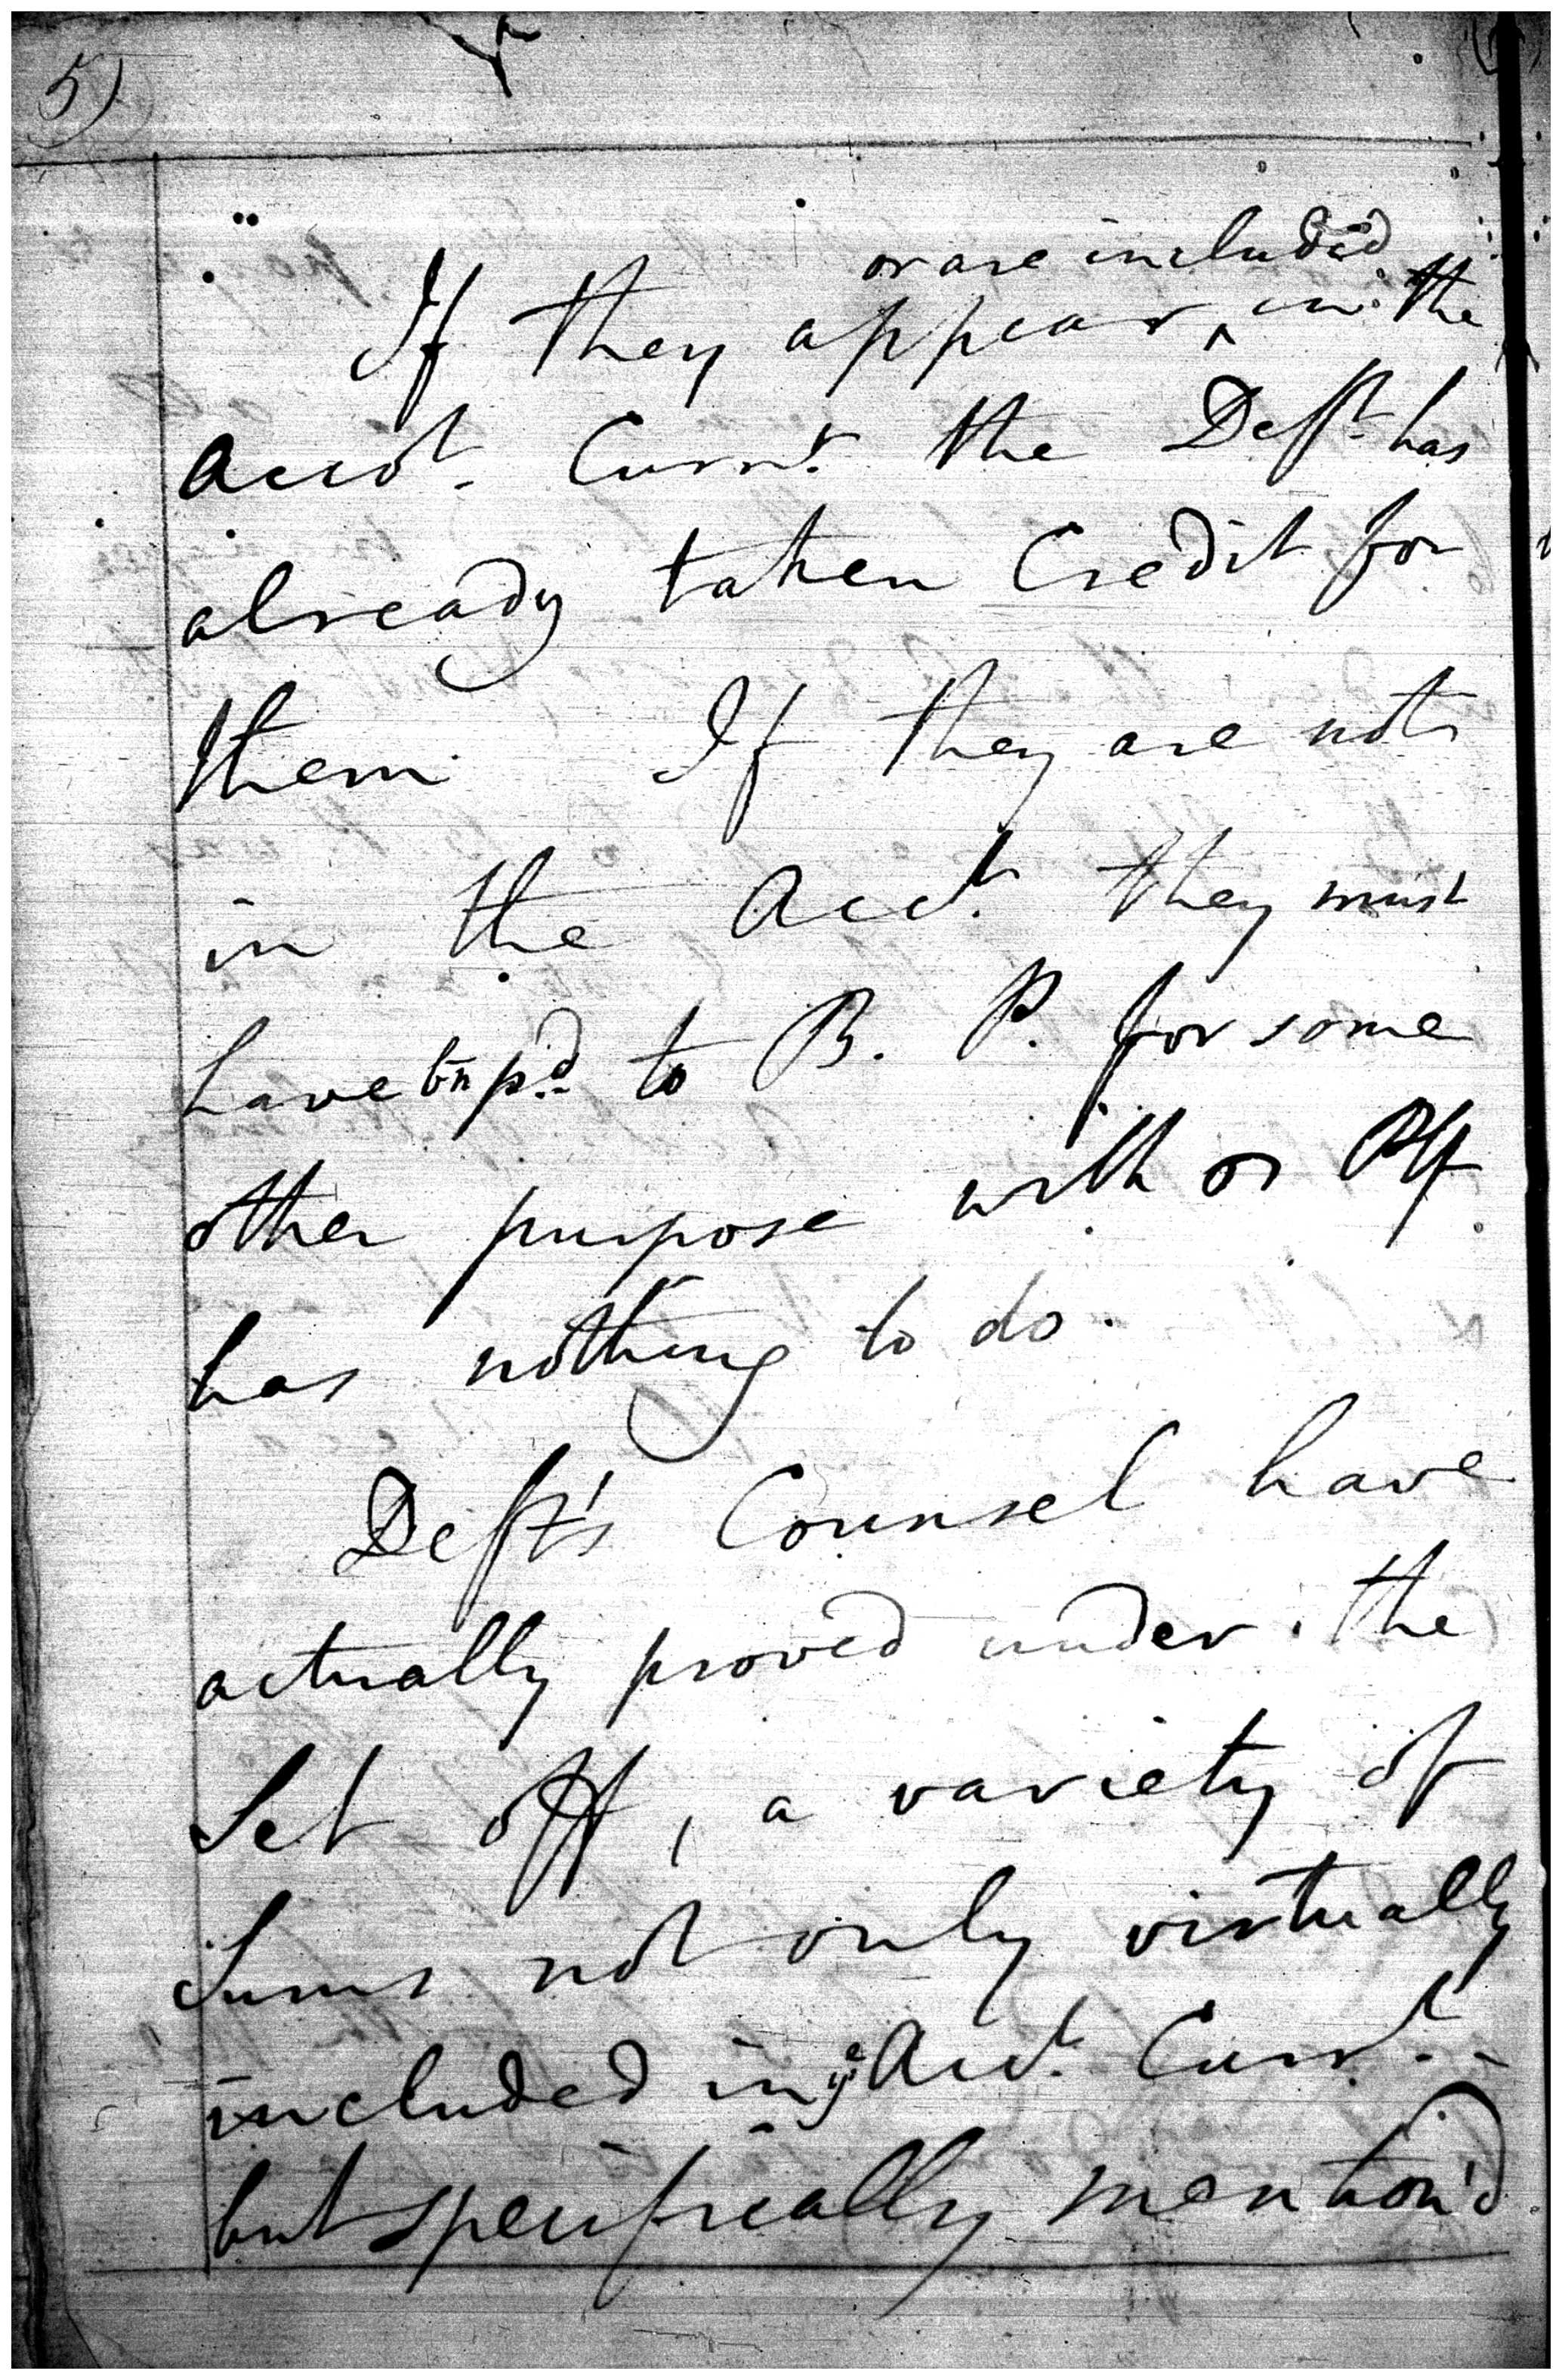 5)
or are included
If they appear ^ in the
Acct. Currt. the Deft. has
already taken Credit for
them. If they are not
in the Acct. they must
have bn pd. to B. P. for some
other purpose with or Plf
has nothing to do.
Deft's Counsel have
actually proved under the
Set off, a variety of
Sums not only virtually
included in ye Acct. Currt. -
but specifically mention'd